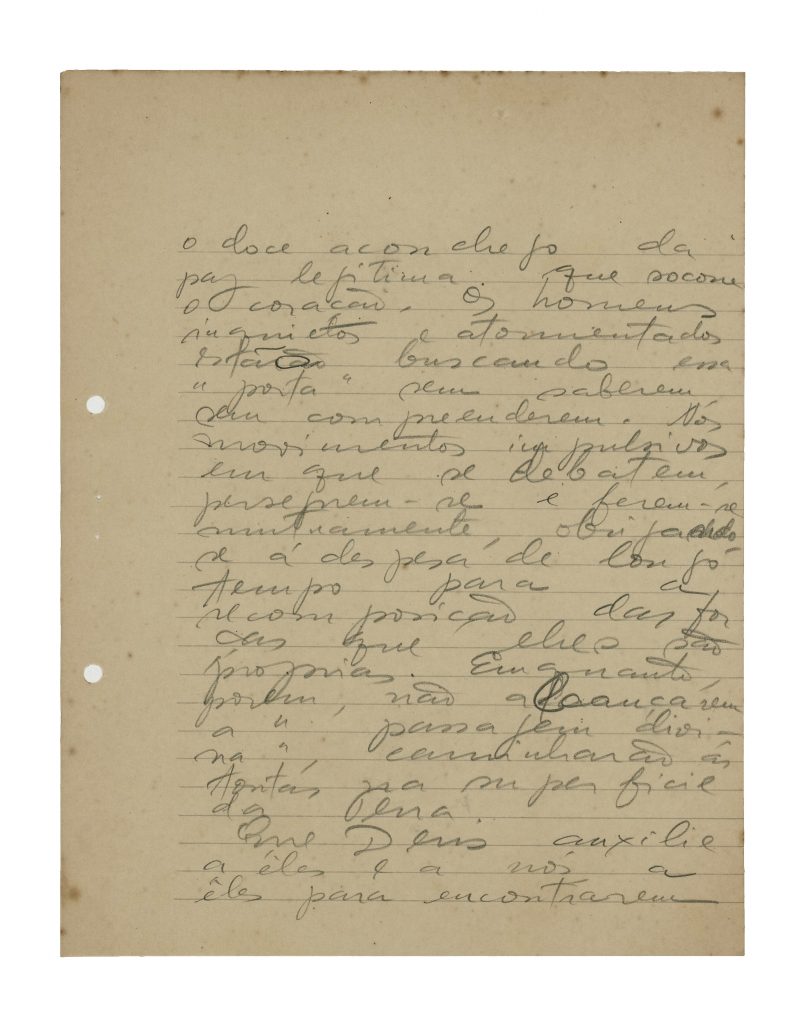 o doce aconchego da
paz legitima que socorre
o coração. Os homens
inquietos e atormentados
estão buscando essa
"porta" sem saberem,
sem compreenderem. Nos
movimentos impulsivos
em que se debatem,
perseguem-se e ferem-se
mutuamente, obrigando-
se á despesa de longo
tempo para a
recomposição das for
ças que lhes são
proprias. Emquanto,
porem, não alcançarem
a "passagem divi-
na", caminharão ás
tontas na superficie
da Terra.
Que Deus auxilie
a êles e a nós a
êles para encontrarem